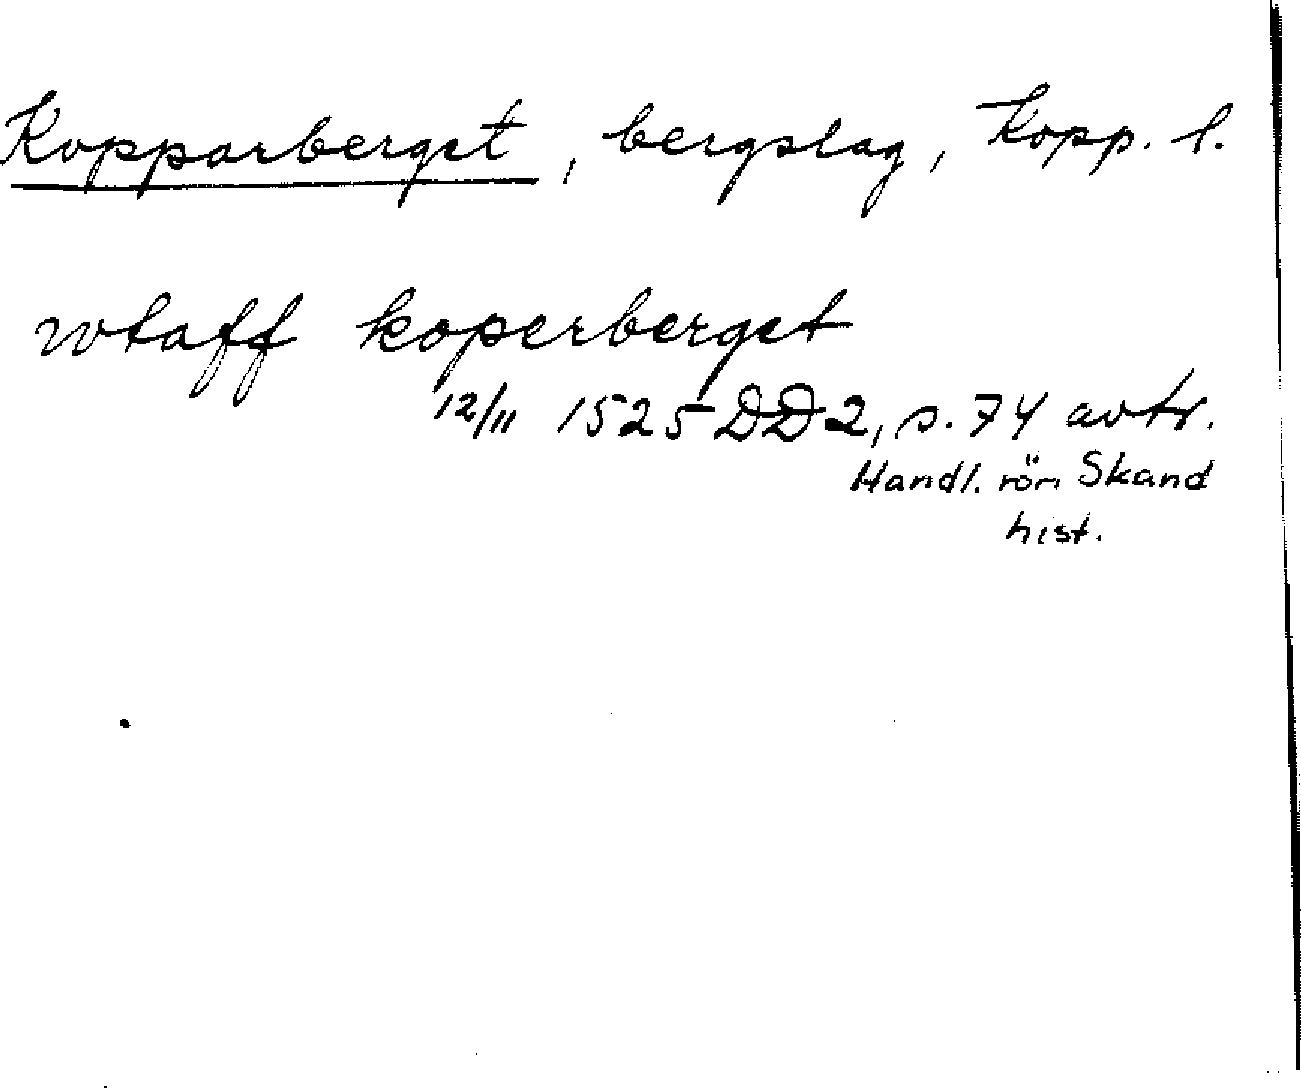 Kopparberget, bergslag, Kopp. l.
wtaff koperberget
12/11 1525 DD2, s. 74 avtr.
Handl. rör. Skand
hist.